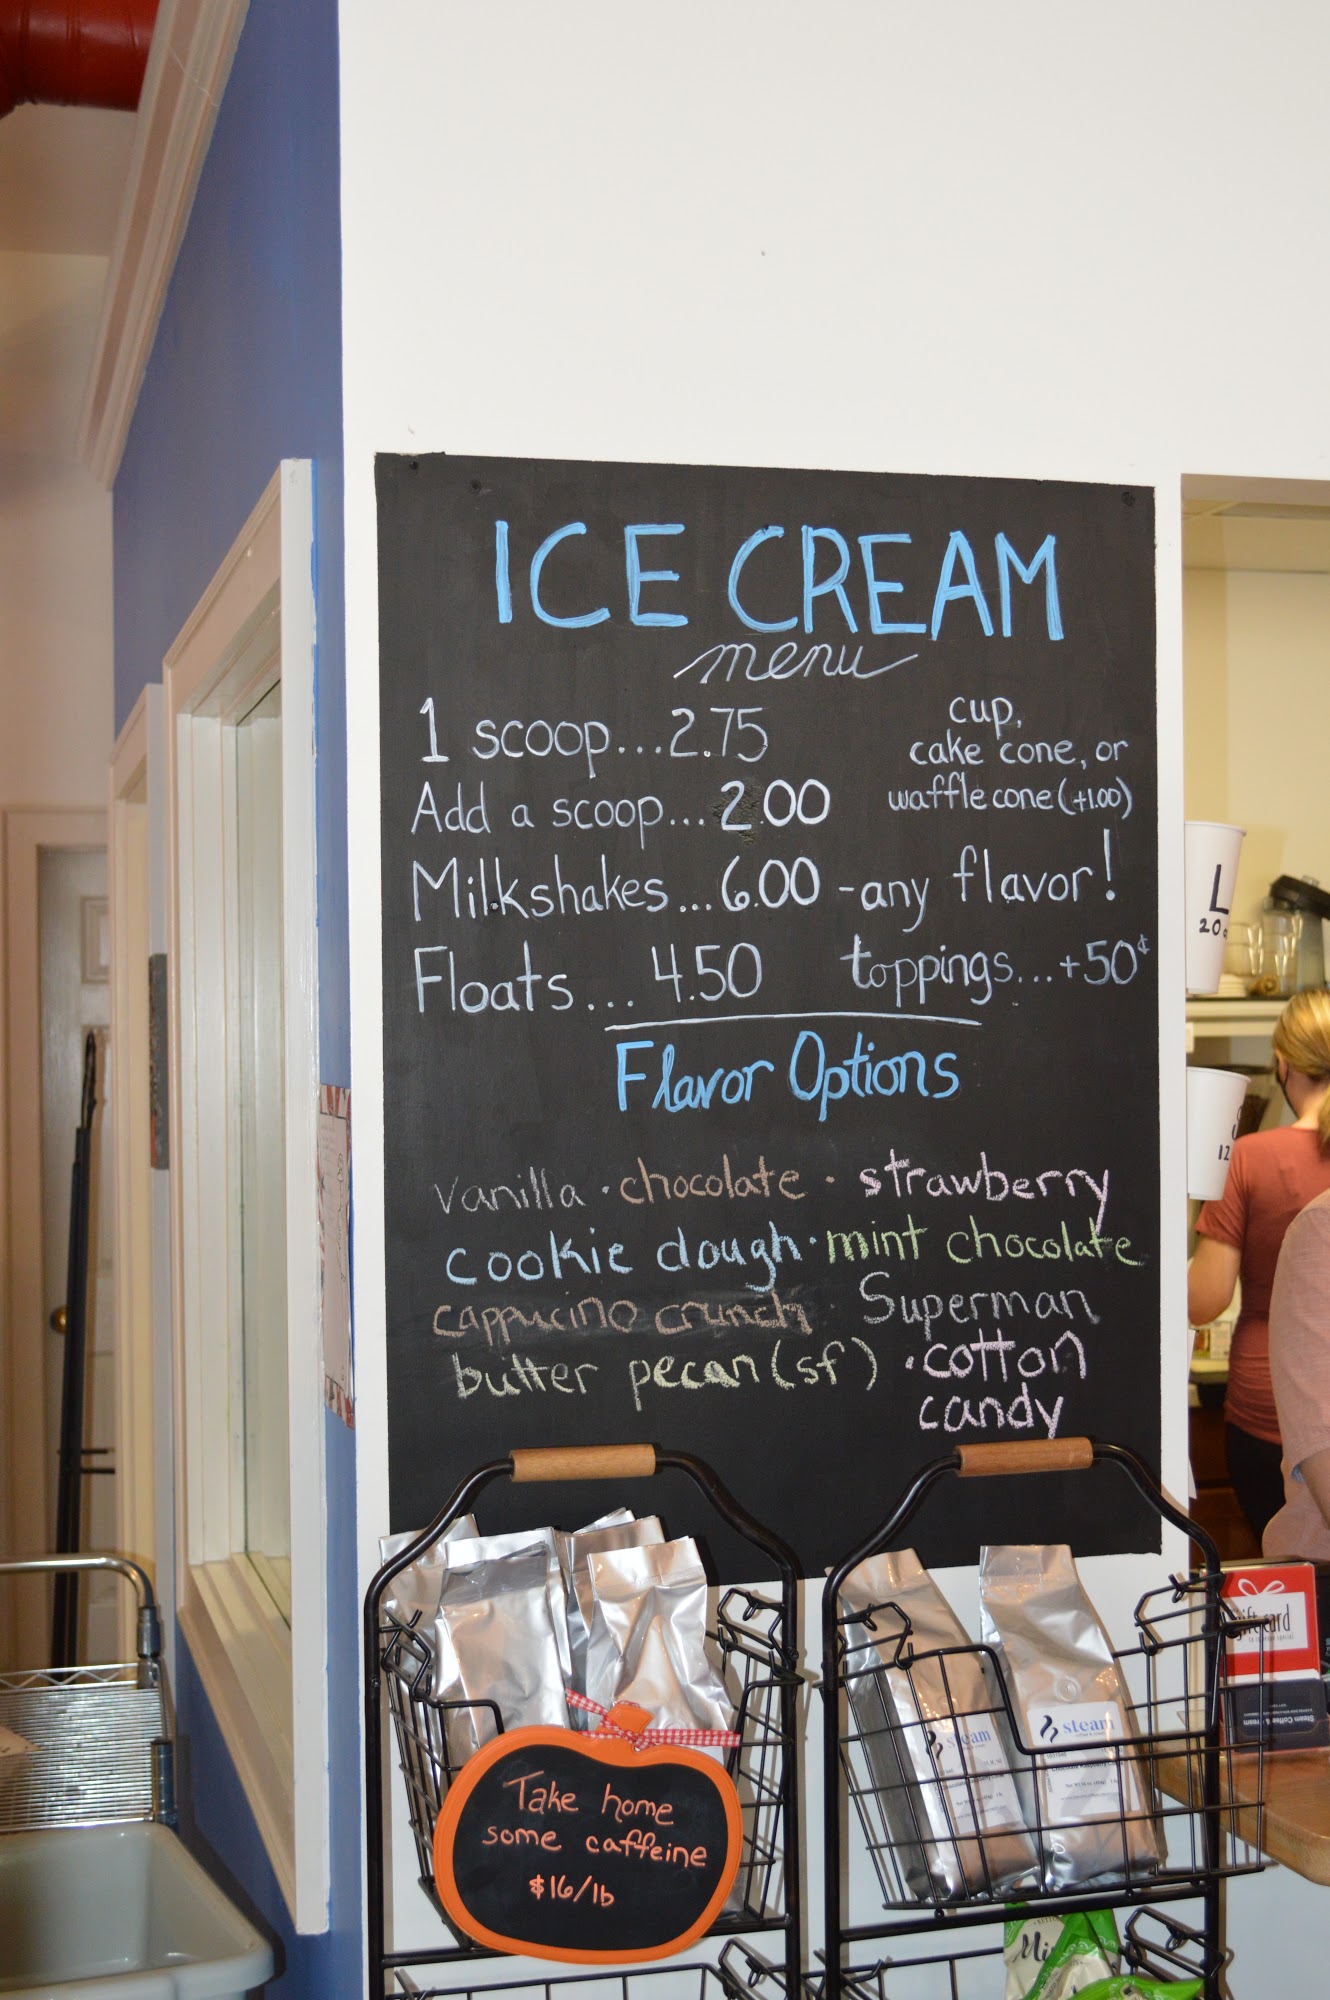 ICE CREAM
menu
1 scoop...2.75
cup,
cake cone, or
waffle cone (+1.00)
Add a scoop...2.00
Milkshakes...6.00 -any flavor!
Floats... 4.50 toppings...+50¢
Flavor Options
vanilla · chocolate · strawberry
cookie dough · mint chocolate
cappucino crunch Superman
butter pecan (sf) · cotton
candy
L
20
12
Take home
some caffeine
$16/lb
steam
steam
gift card
Steam Coffee & Cream
Mi